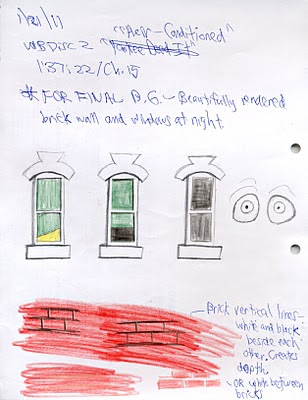 1/21/11 "Heir-Conditioned"
WB Disc 2 "Yankee Dood It"
1:37:22/Ch.15
* FOR FINAL B.G. - Beautifully rendered
brick wall and windows at night.
Brick vertical lines-
white and black
beside each
other. Creates
depth.
- OR white between
bricks